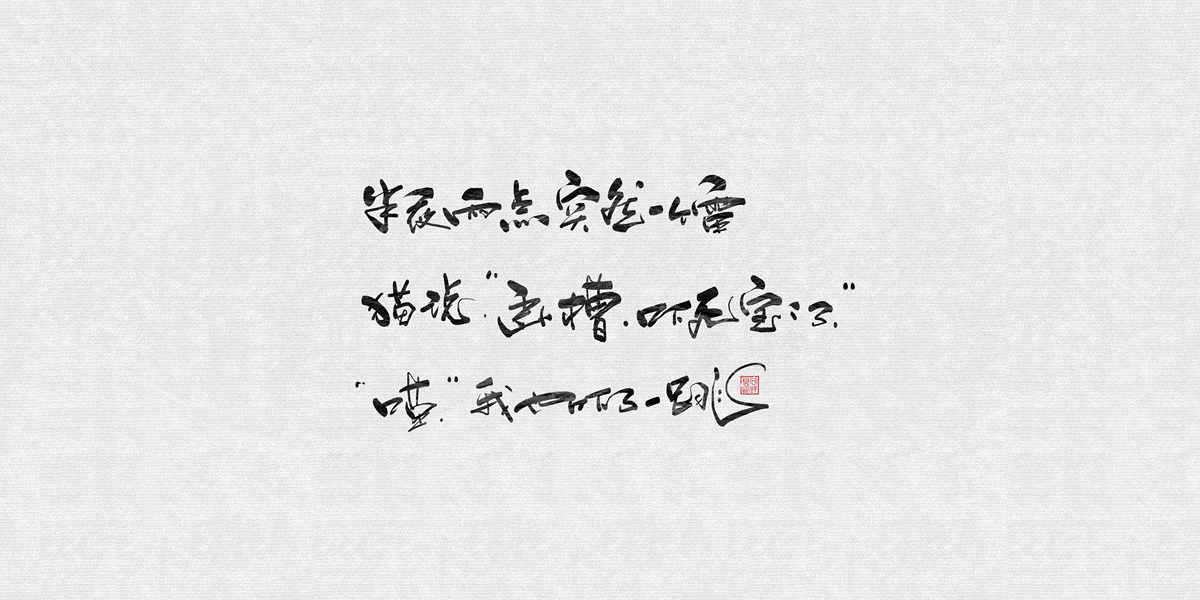 半夜两点突然一个雷
猫说："卧槽，吓死宝宝了。"
"喵。"我也吓了一跳